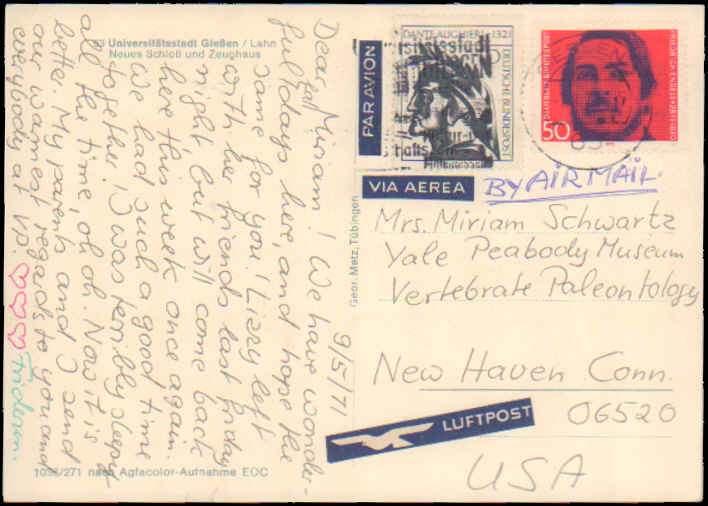 63 Universitätsstadt Gießen / Lahn
Neues Schloß und Zeughaus
9/5/71
Dear Miriam! We have wonder-
full days here, and hope the
same for you! Liezy left
with her friends last friday
night but will come back
here this week once again.
We had such a good time
together. I was terribly sleepy
all the time, oh oh. Now it is
better. My parents and I send
our warmest regards to you and
everybody at V.P.
1038/271 nach Agfacolor-Aufnahme EOC
Gebr. Metz, Tübingen
PAR AVION
DANTE ALIGHIERI 1321
DEUTSCHE BUNDESPOST
DEUTSCHE BUNDESPOST
FRIEDRICH ENGELS
50
VIA AEREA
BY AIR MAIL.
Mrs. Miriam Schwartz
Yale Peabody Museum
Vertebrate Paleontology
New Haven Conn.
06520
USA
LUFTPOST